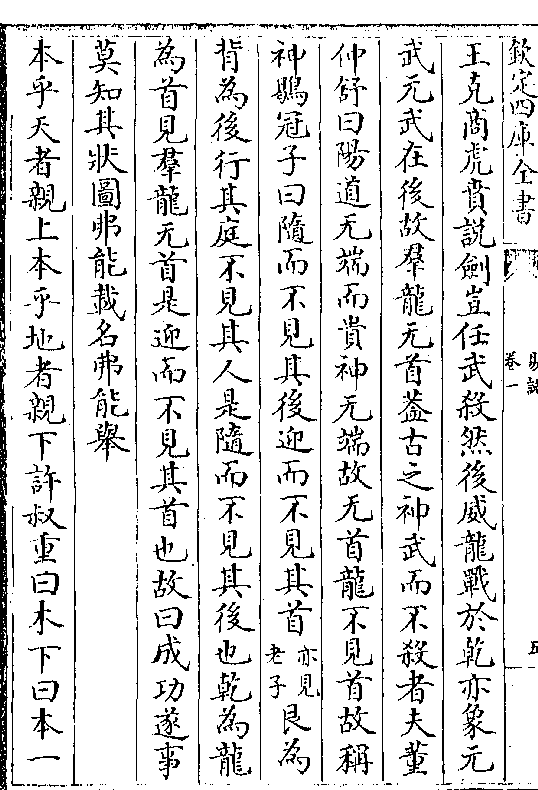 欽定四庫全書
易説
卷一
五
王克商虎賁說劍豈任武殺然後威龍戰於乾亦象元
武元武在後故羣龍无首葢古之神武而不殺者夫董
仲舒曰陽道无端而貴神无端故无首龍不見首故稱
神鶡冠子曰隨而不見其後迎而不見其首亦見老子艮為
背為後行其庭不見其人是隨而不見其後也乾為龍
為首見羣龍无首是迎而不見其首也故曰成功遂事
莫知其狀圖弗能載名弗能舉
本乎天者親上本乎地者親下許叔重曰木下曰本一